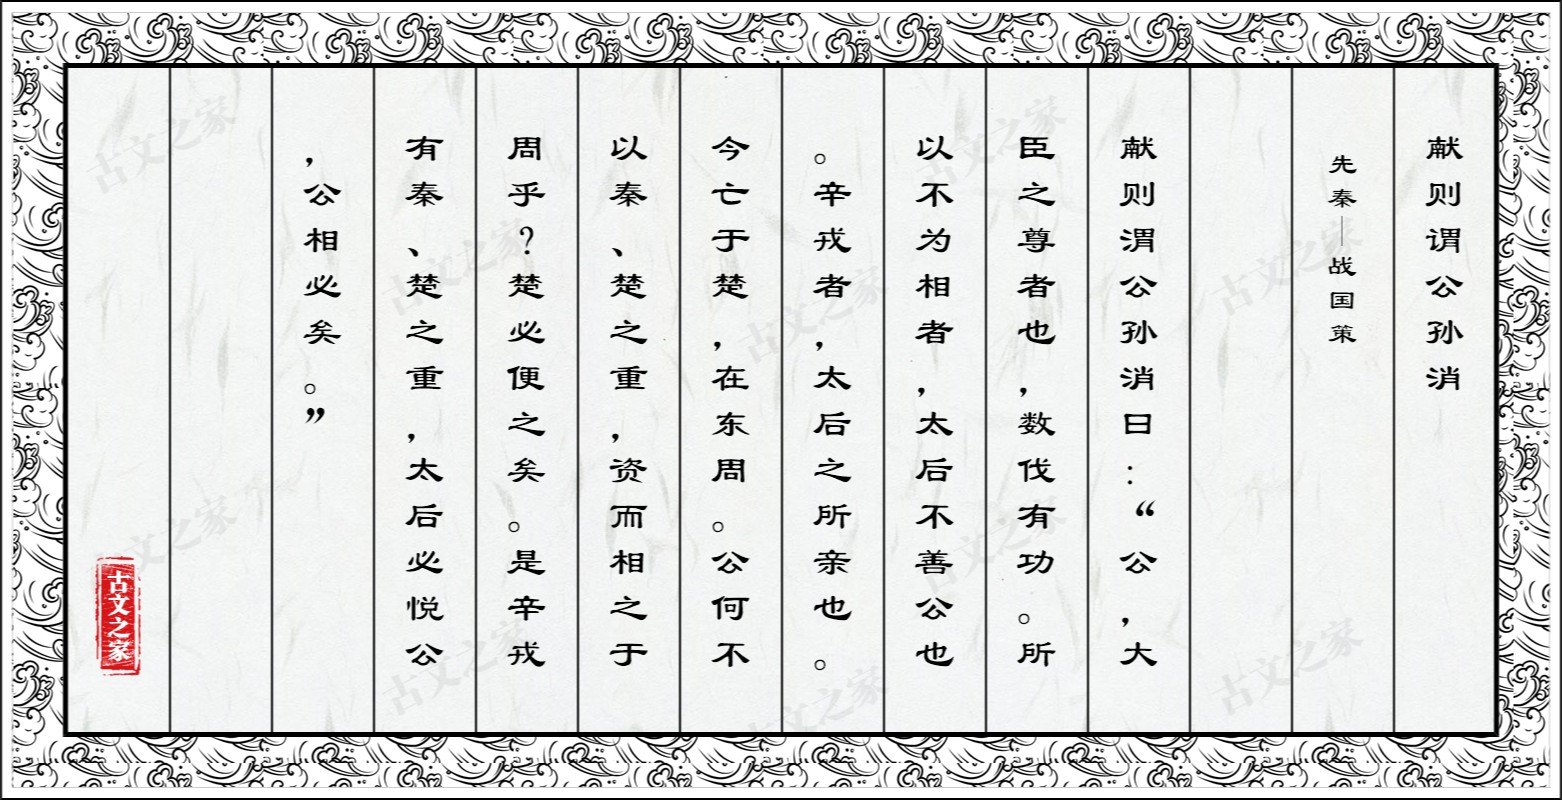 献则谓公孙消
先秦—战国策
献则渭公孙消曰：“公，大
臣之尊者也，数伐有功。所
以不为相者，太后不善公也
。辛戎者，太后之所亲也。
今亡于楚，在东周。公何不
以秦、楚之重，资而相之于
周乎？楚必便之矣。是辛戎
有秦、楚之重，太后必悦公
，公相必矣。”
古文之家